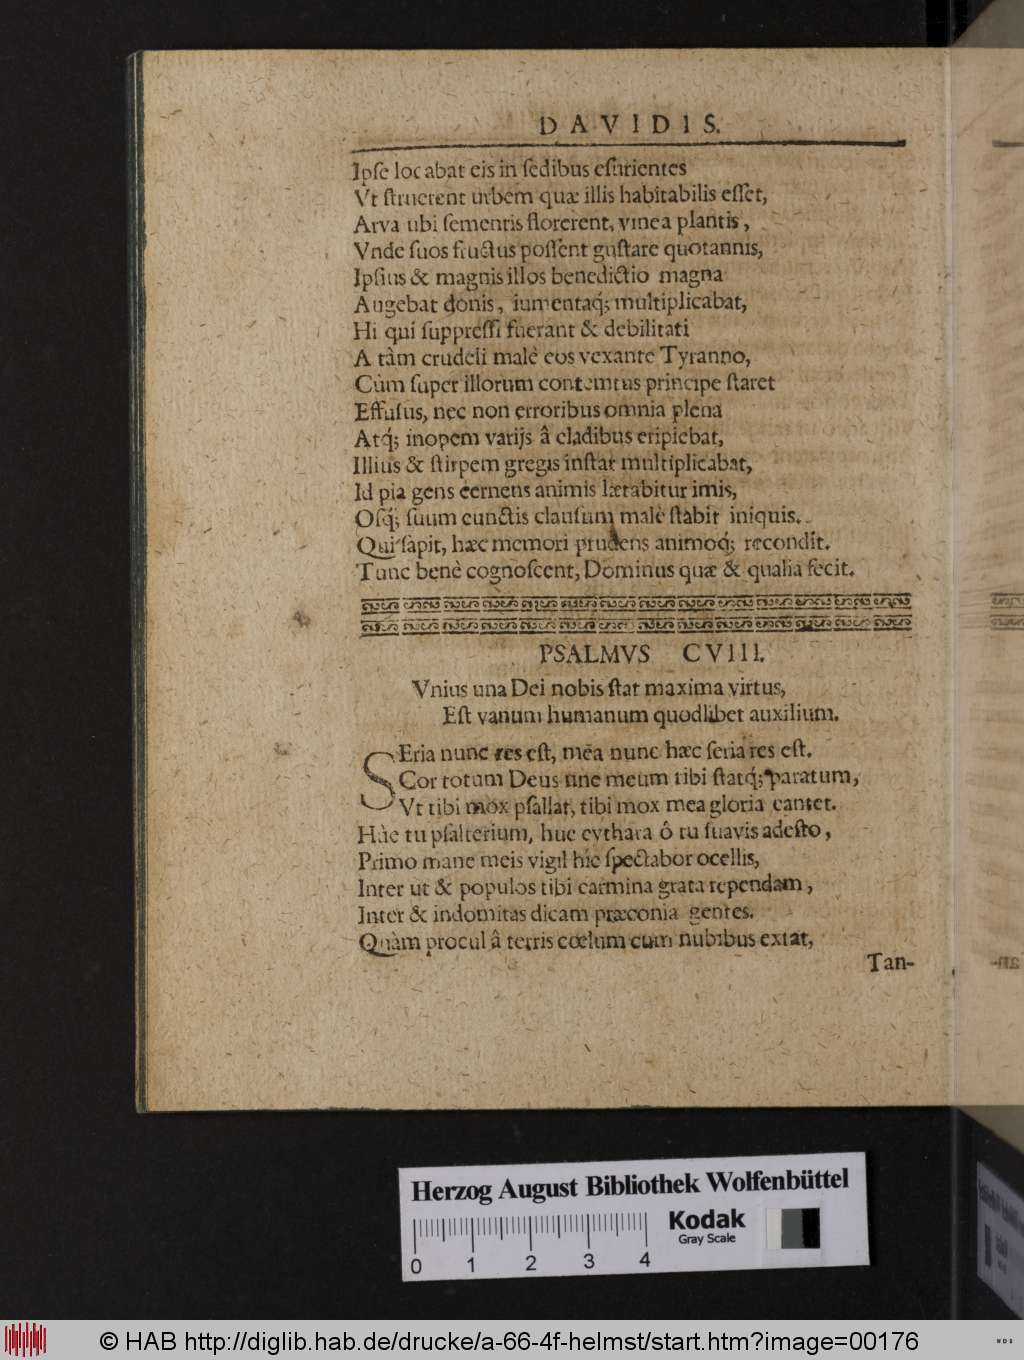 DAVIDIS.
Ipſe locabat eis in ſedibus eſurientes
Vt ſtruerent urbem quæ illis habitabilis eſſet,
Arva ubi ſementis florerent, vinea plantis,
Vnde ſuos fructus poſſent guſtare quotannis,
Ipſius & magnis illos benedictio magna
Augebat donis, iumentaq́; multiplicabat,
Hi qui ſuppreſſi fuerant & debilitati
A tàm crudeli malè eos vexante Tyranno,
Cùm ſuper illorum contemtus principe ſtaret
Effuſus, nec non erroribus omnia plena
Atq́; inopem varijs â cladibus eripiebat,
Illius & ſtirpem gregis inſtar multiplicabat,
Id pia gens cernens animis lætabitur imis,
Oſq́; ſuum cunctis clauſum malè ſtabit iniquis.
Qui ſapit, hæc memori prudens animoq́; recondit.
Tunc benè cognoſcent, Dominus quæ & qualia fecit.
PSALMVS CVIII.
Vnius una Dei nobis ſtat maxima virtus,
Eſt vanum humanum quodlibet auxilium.
SEria nunc res eſt, mea nunc hæc ſeria res eſt.
Cor totum Deus une meum tibi ſtatq́; paratum,
Vt tibi mox pſallat, tibi mox mea gloria cantet.
Hùc tu pſalterium, huc cythara ô tu ſuavis adeſto,
Primo mane meis vigil hic ſpectabor ocellis,
Inter ut & populos tibi carmina grata rependam,
Inter & indomitas dicam præconia gentes.
Quàm procul â terris cœlum cum nubibus extat,
Tan-
Herzog August Bibliothek Wolfenbüttel
Kodak
Gray Scale
0 1 2 3 4
© HAB http://diglib.hab.de/drucke/a-66-4f-helmst/start.htm?image=00176